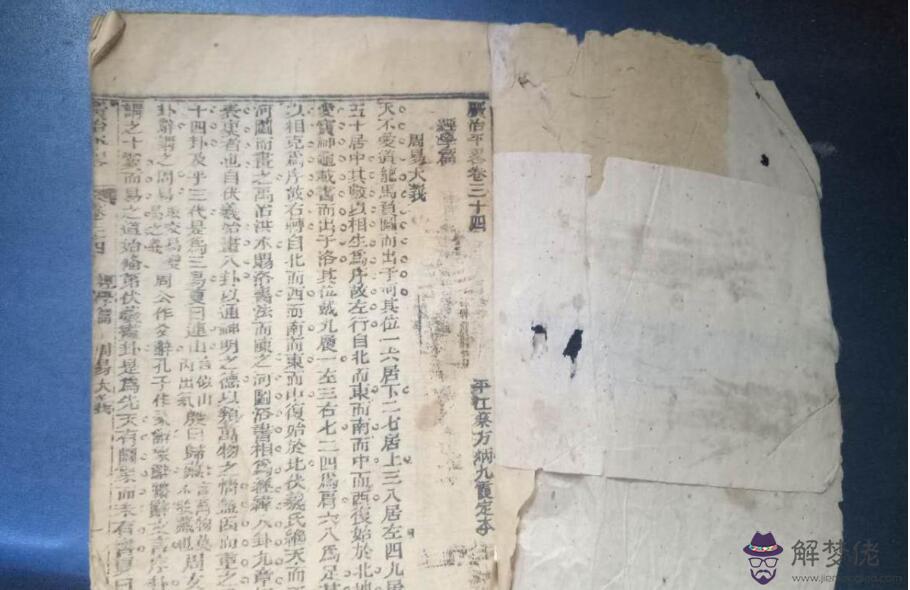 廣治平畧卷三十四
平江蔡方炳九霞定本
經學篇
周易大義
天不愛道龍馬負圖而出于河其位一六居下二七居上三八居左四九居
五十居中其數以相生爲序故左行自北而東而南而中而西復始於北地
愛寶神龜載書而出于洛其位戴九履一左三右七二四爲肩六八爲足
以相克爲序故右轉自北而西而南而東而中復始於北伏羲氏繼天而
河圖而畫之禹治洪水賜洛書法而陳之河圖洛書相爲經緯八卦九章
表裏者也自伏羲始畫八卦以通神明之德以類萬物之情蓋因而重之
十四卦及乎三代是爲三易夏曰連山言似山內出氣殷曰歸藏言萬物莫不歸藏周文
卦辭謂之周易周公作爻辭孔子作彖辭象辭
謂之十翼而易之道始備第伏羲畫卦是爲先天有圖象而未有書夏曰
經學篇 周易大義
解梦佬